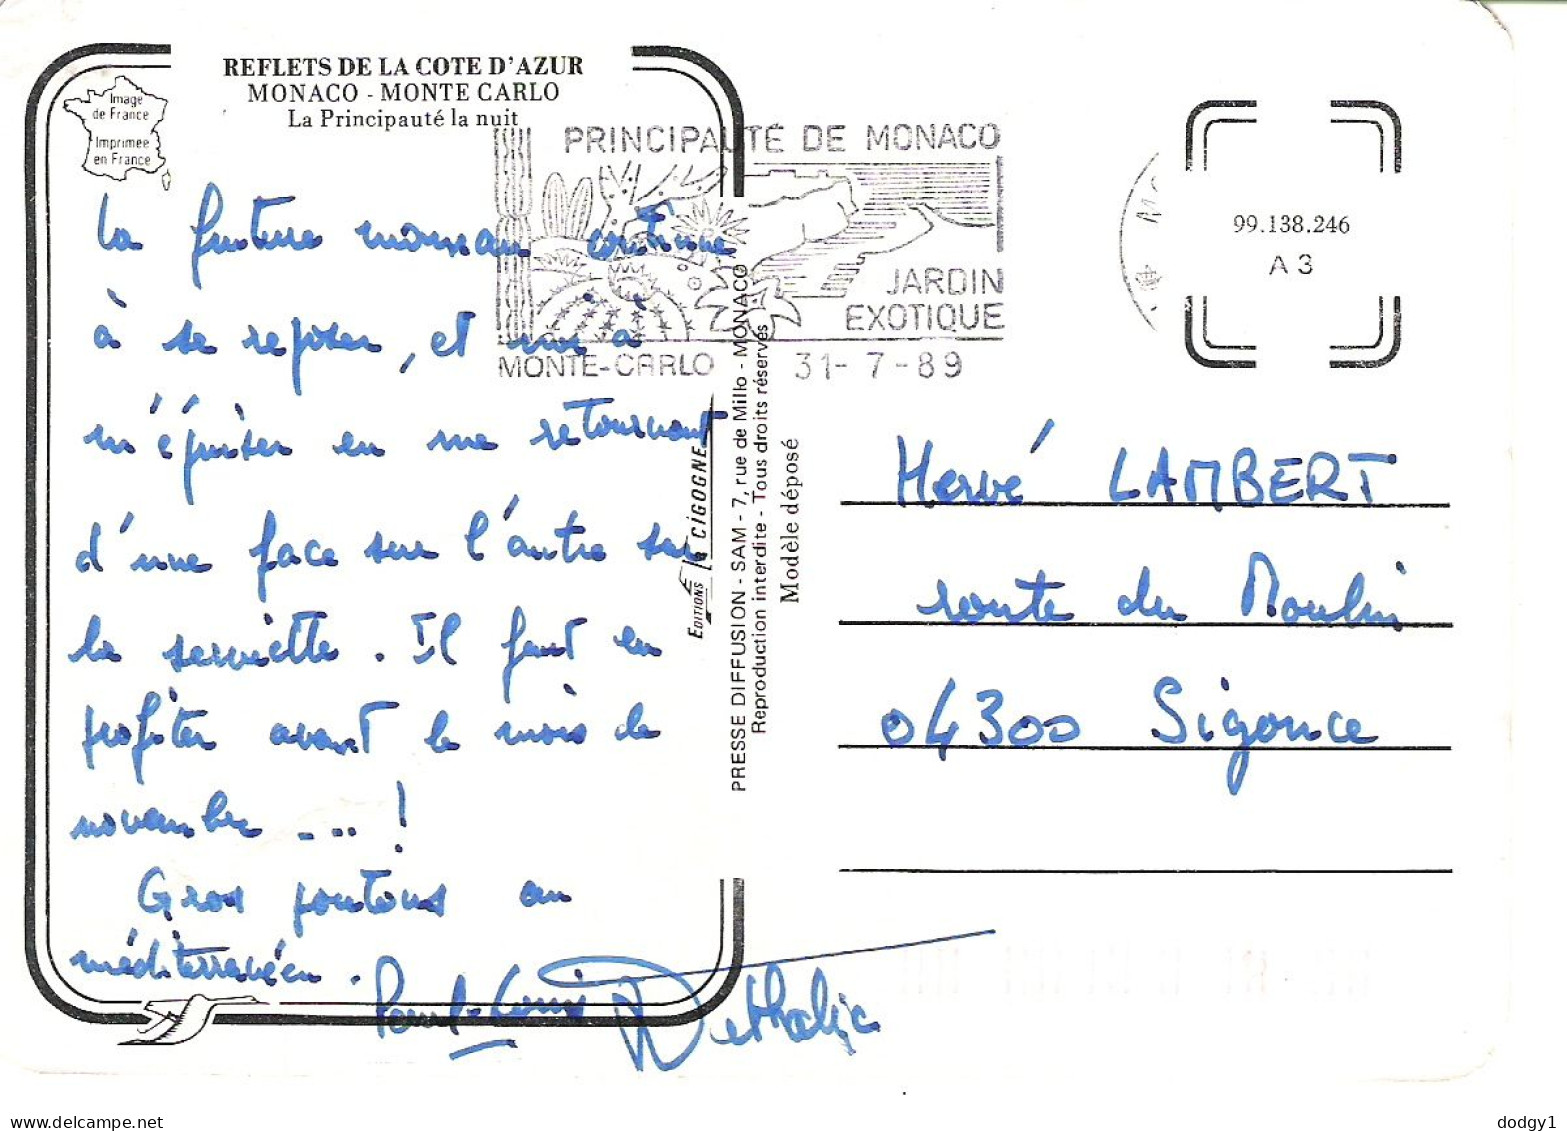 REFLETS DE LA COTE D'AZUR
MONACO - MONTE CARLO
La Principauté la nuit
Image
de France
Imprimée
en France
PRINCIPAUTÉ DE MONACO
JARDIN
EXOTIQUE
MONTE-CARLO 31-7-89
99.138.246
A 3
La future maman continue
à se reposer, et moi à
m'épuiser en me retournant
d'une face sur l'autre sur
la serviette. Il faut en
profiter avant le mois de
novembre ... !
Gros poutous au
méditerranéen.
Paul-Louis
EDITIONS LA CIGOGNE
PRESSE DIFFUSION - SAM - 7, rue de Millo - MONACO
Reproduction interdite - Tous droits réservés
Modèle déposé
Hervé LAMBERT
route du Moulin
04300 Sigonce
delcampe.net
dodgy1